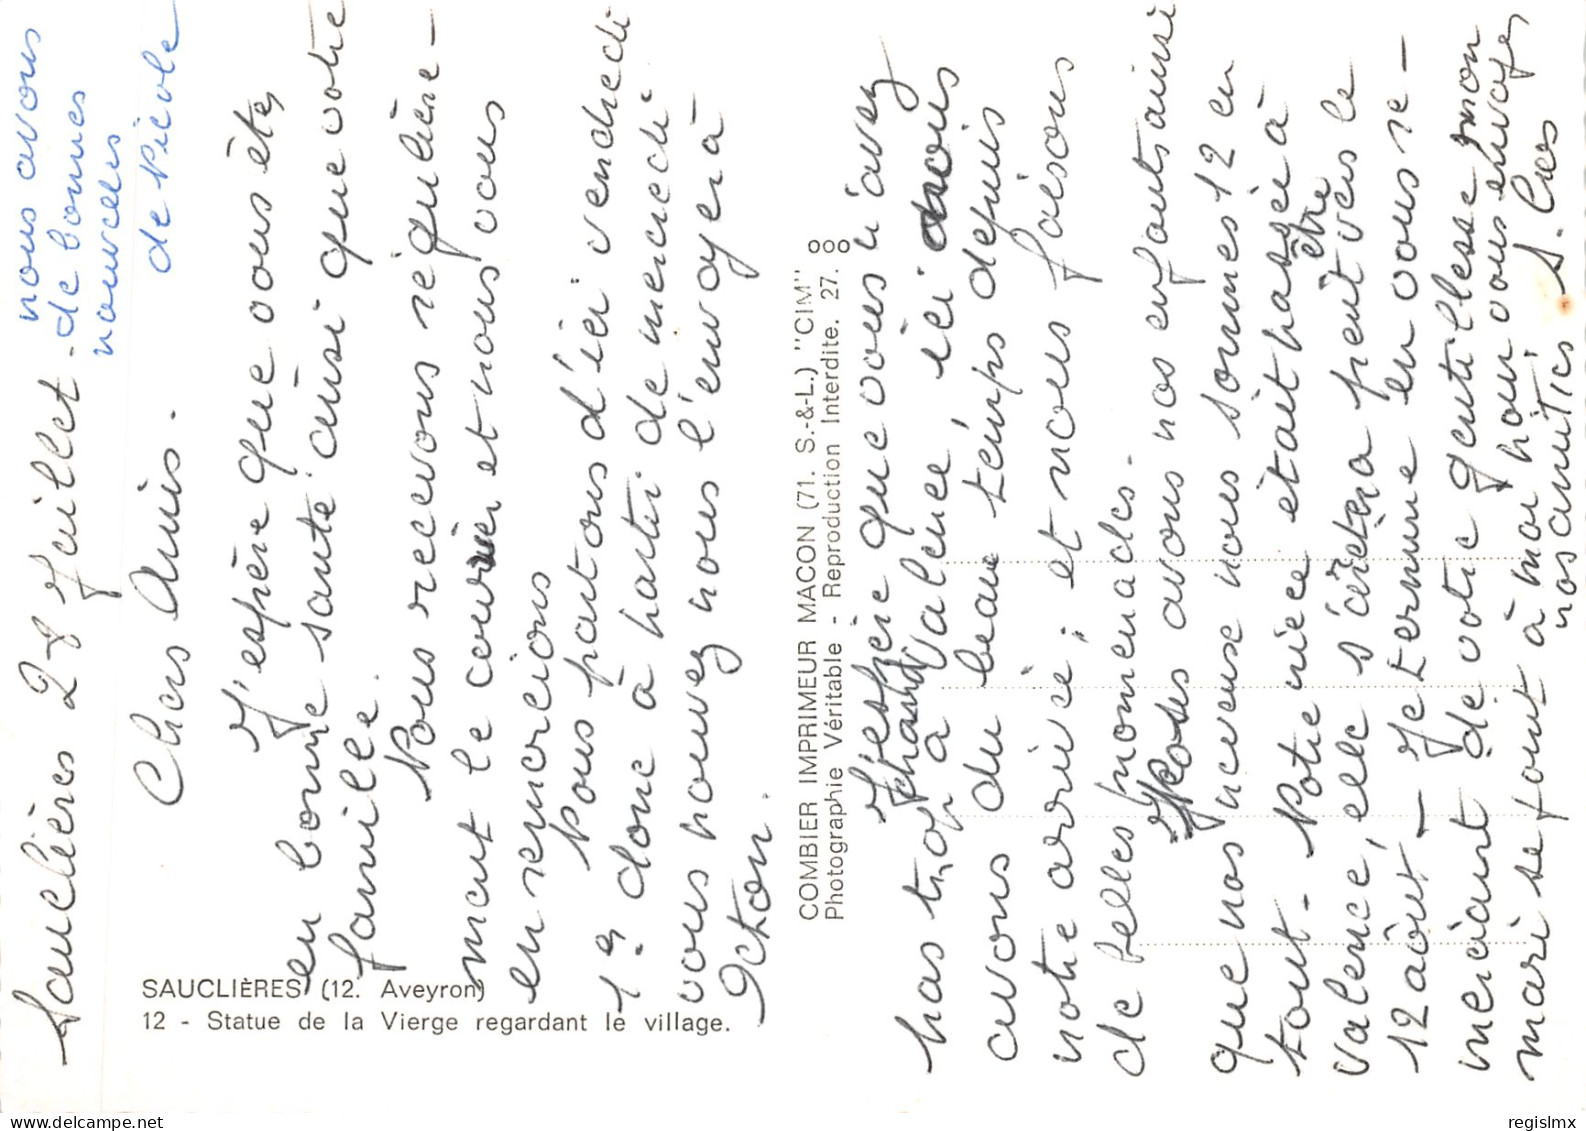 Sauclières 28 Juillet -
nous avons
de bonnes
nouvelles
de Nicole
Chers Amis.
J'espère que vous êtes
en bonne santé ainsi que votre
famille.
Nous recevons régulière-
ment le courrier et nous vous
en remercions
Nous partons d'ici vendredi
1er donc à parti de mercredi
vous pouvez nous l'envoyer à
Octon.
SAUCLIÈRES (12. Aveyron)
12 - Statue de la Vierge regardant le village.
COMBIER IMPRIMEUR MACON (71. S.-&-L.) "CIM"
Photographie Véritable - Reproduction Interdite. 27.
J'espère que vous n'avez
pas trop chaud à Valence, ici nous
avons du beau temps depuis
notre arrivée, et nous faisons
de belles promenades.
Nous avons nos enfants ainsi
que nos neveux nous sommes 12 en
tout. Notre nièce était passée à
Valence, elle s'arètera peut être vers le
12 août - Je termine en vous re-
merciant de votre gentillesse mon
mari se joint à moi pour vous envoyer
nos amitiés.